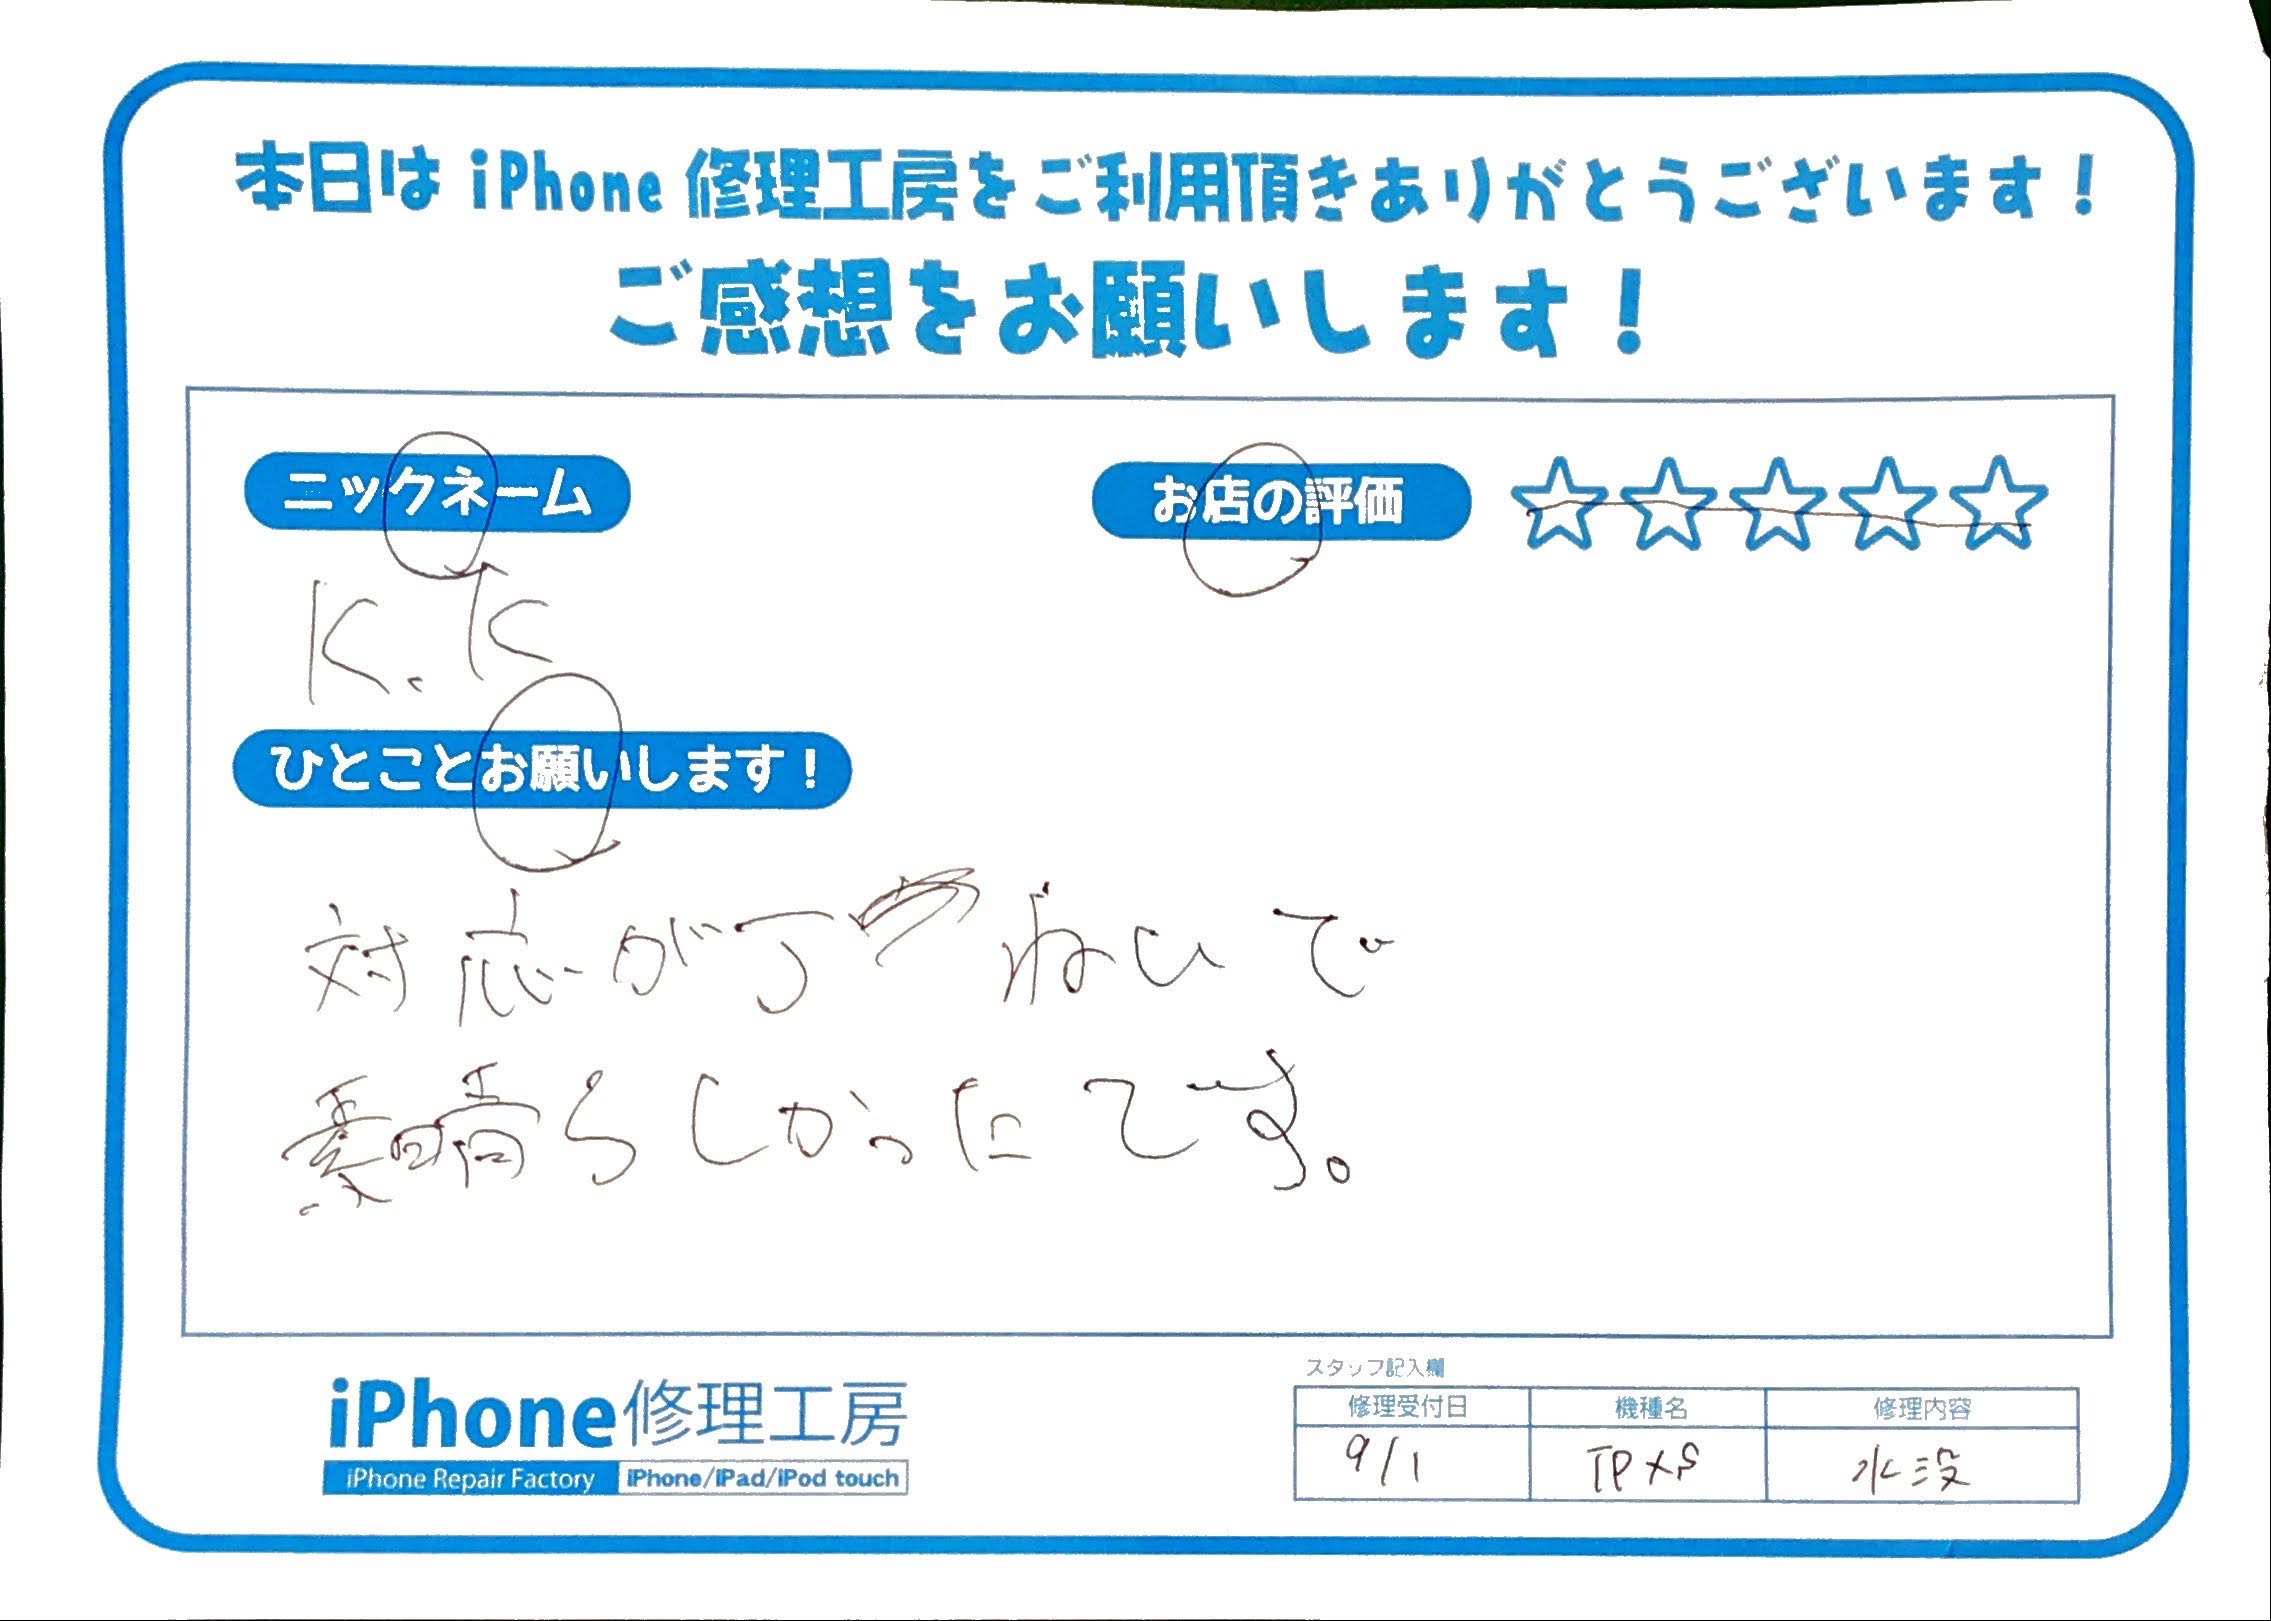 本日は iPhone 修理工房をご利用頂きありがとうございます!
ご感想をお願いします!
ニックネーム
お店の評価 ☆☆☆☆☆
K.K
ひとことお願いします!
対応が丁ねいで
素晴らしかったです。
iPhone修理工房
iPhone Repair Factory iPhone/iPad/iPod touch
スタッフ記入欄
修理受付日 機種名 修理内容
9/1 IPXS 水没